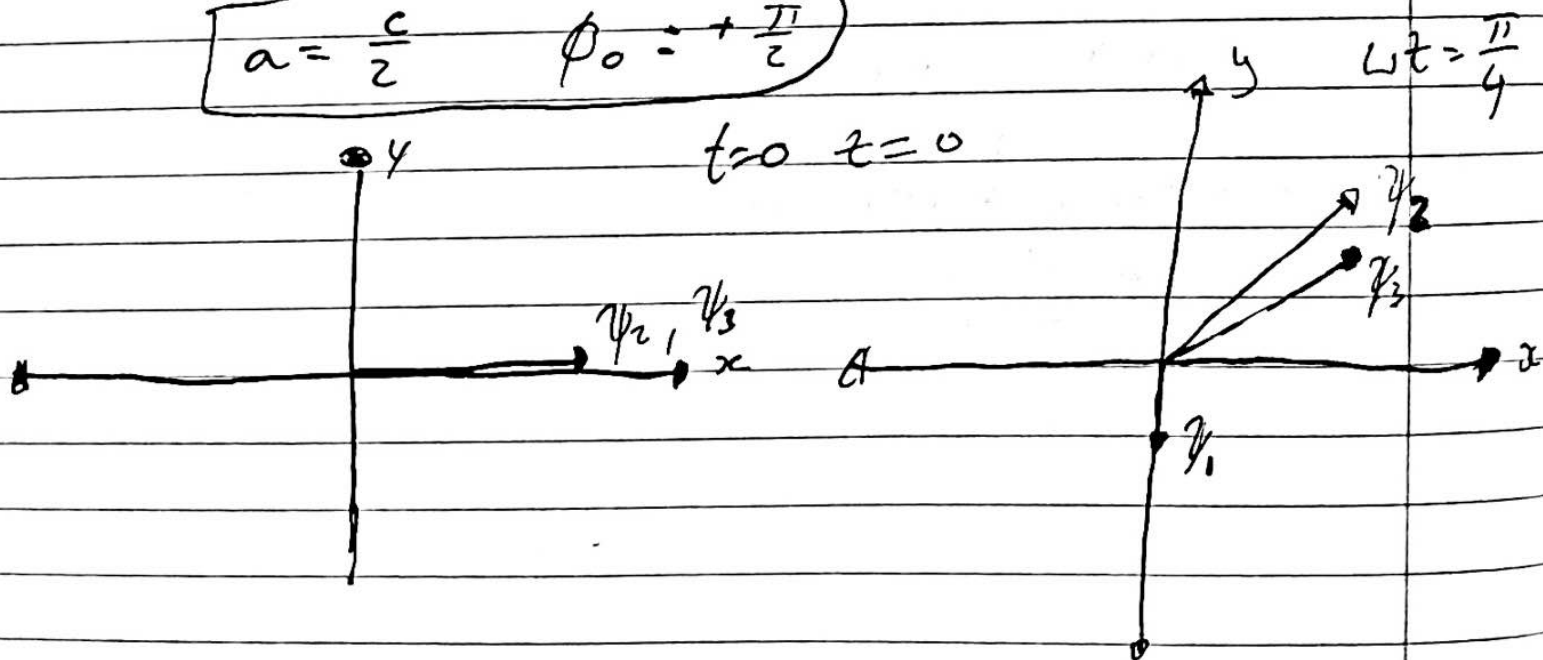 a = c/2 φ₀ = + π/2
y ωt = π/4
y t=0 z=0
ψ₂
ψ₃
ψ₂, ψ₃ x
x
ψ₁